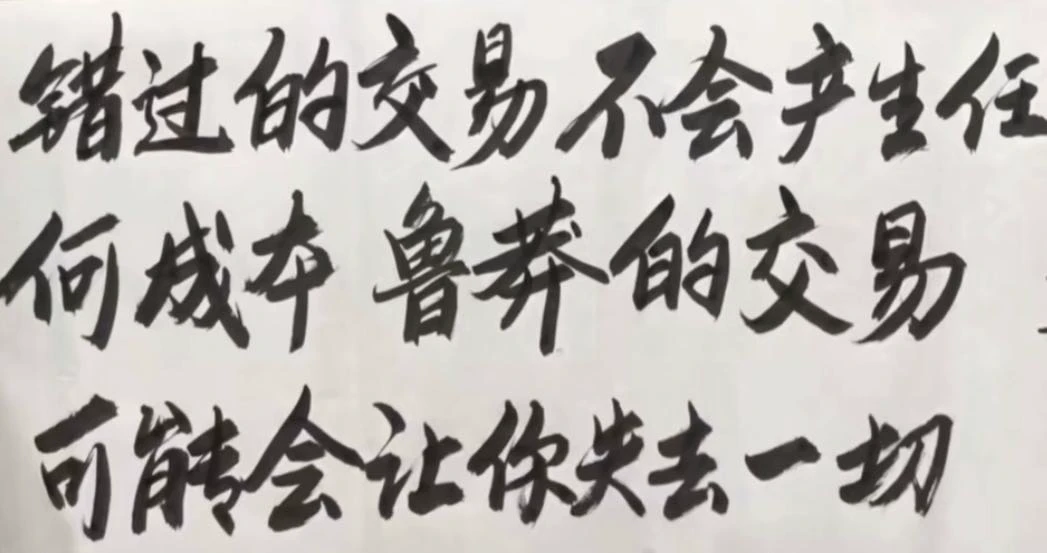 错过的交易不会产生任
何成本 鲁莽的交易
可能会让你失去一切